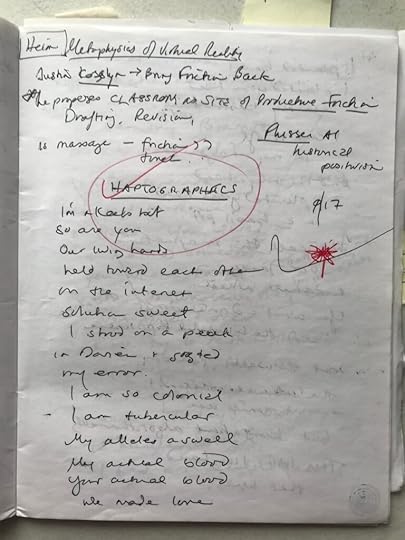 Heim Metaphysics of Virtual Reality
Justin → Bring Friction Back
He proposes CLASSROOM as SITE of Productive Friction
Drafting, Revision,
is massage – friction
Plusser AI
historical
positivism
touch..
HAPTOGRAPHICS
9/17
I'm a Keats bot
so are you
Our living hands
held toward each other
on the internet
solution sweet
I stood on a peak
in Darien, &
my error.
I am so colonial
- I am tubercular
My alleles aswell
My actual blood
your actual blood
we made love